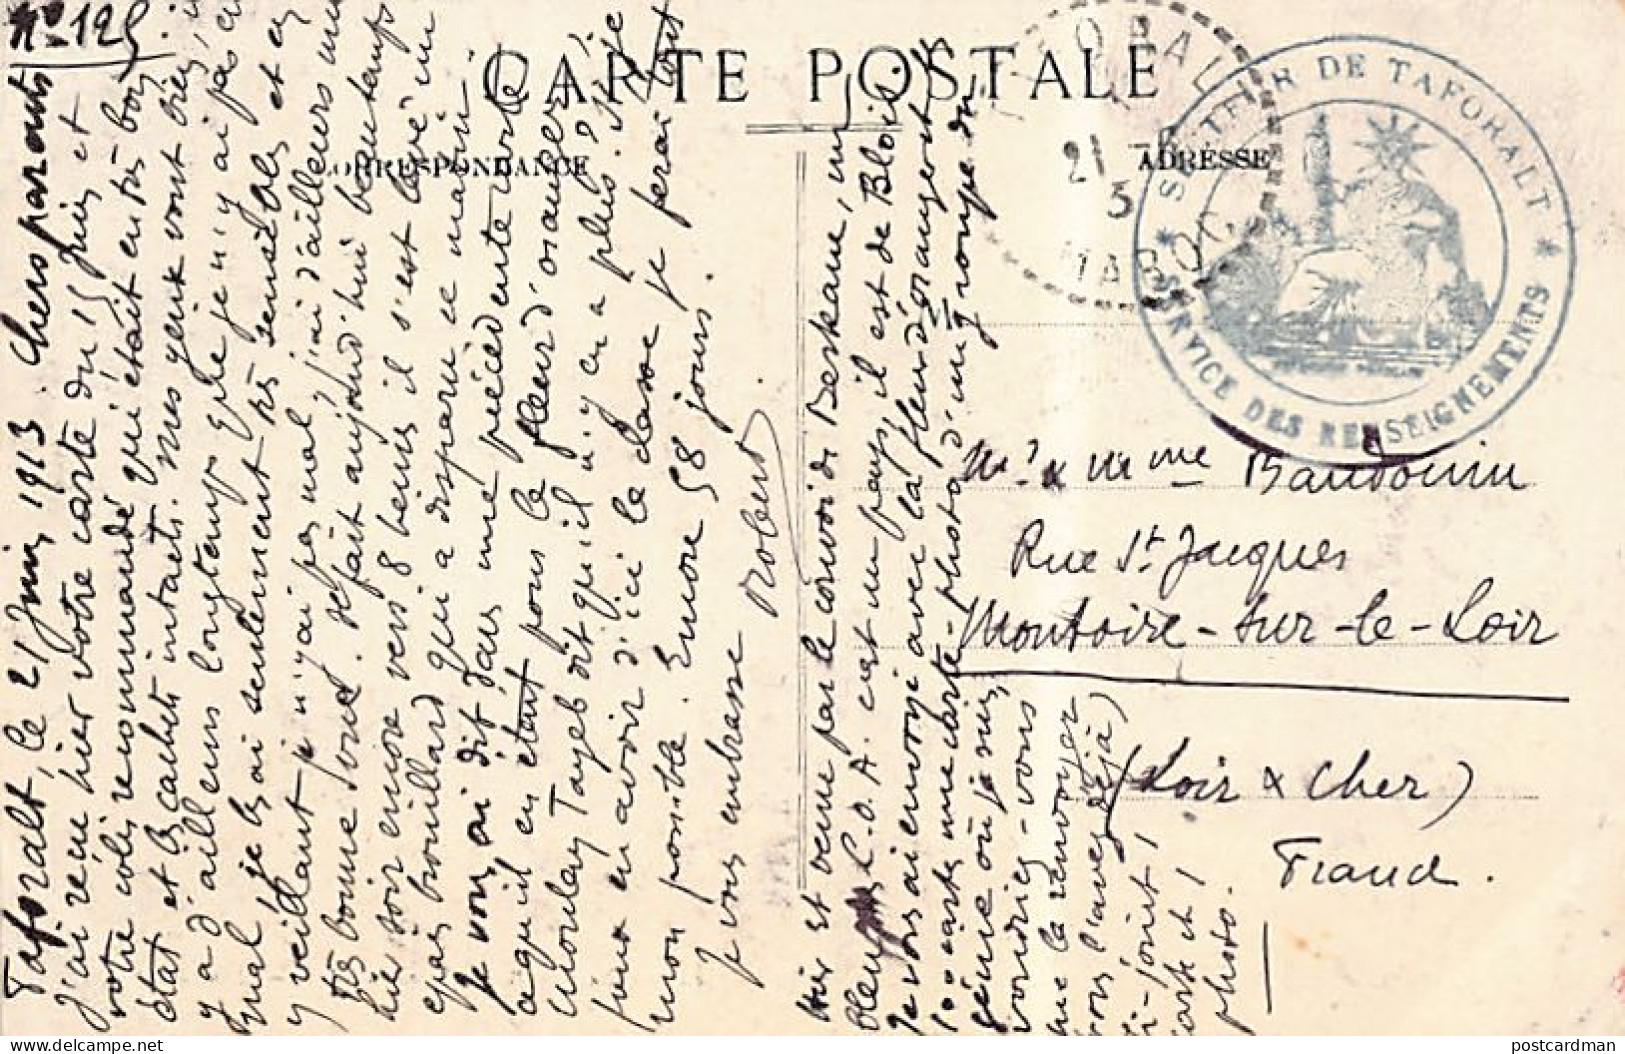 N° 125
CARTE POSTALE
CORRESPONDANCE
ADRESSE
TAFORALT
21
3
MAROC
SECTEUR DE TAFORALT
SERVICE DES RENSEIGNEMENTS
Mr & Mme Baudouin
Rue St Jacques
Montoire-sur-le-Loir
(Loir & Cher)
France.
Taforalt, le 21 Juin 1913. Chers parents
J'ai reçu hier votre carte du 15 juin et
votre colis recommandé qui était en très bon
état et les cachets intacts. Mes yeux vont bien, il
y a d'ailleurs longtemps que je n'y ai pas eu
mal, je les ai seulement très sensibles et en
y veillant je n'y ai pas mal, j'ai d'ailleurs une
très bonne vue. Il fait aujourd'hui beau temps
hier soir encore vers 8 heures il s'est levé un
épais brouillard qui a disparu ce matin.
Je vous ai dit dans une précédente carte
ce qu'il en était pour la fleur d'oranger,
Moulay Tayeb dit qu'il n'y en a plus. Si je
peux en avoir d'ici la classe je ferai tout
mon possible. Encore 58 jours.
Je vous embrasse Robert
Hier est venu par le convoi de Berkane, un
C.O.A. c'est un pays, il est de Blois.
Je vous ai envoyé avec la fleur d'oranger
100 cartes une carte-photo d'un groupe du
génie où je suis,
voudriez-vous
me la renvoyer
vous l'avez déjà)
Ci-joint 1
carte et 1
photo.
postcardman